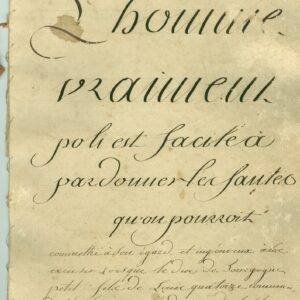 L'homme
vraiment
poli est facile à
pardonner les fautes
qu'on pourroit
commettre à son égard et ingénieux à les
excuser Lorsque le Duc de Bourgogne
petit fils de Louis quatorze